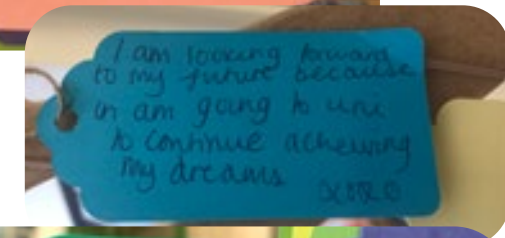 I am looking forward
to my future because
in am going to uni
to continue acheiving
my dreams